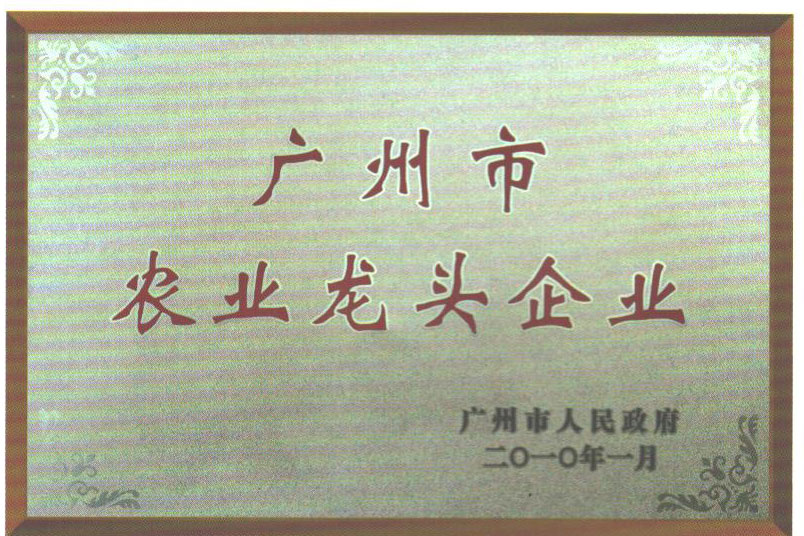 广州市
农业龙头企业
广州市人民政府
二〇一〇年一月